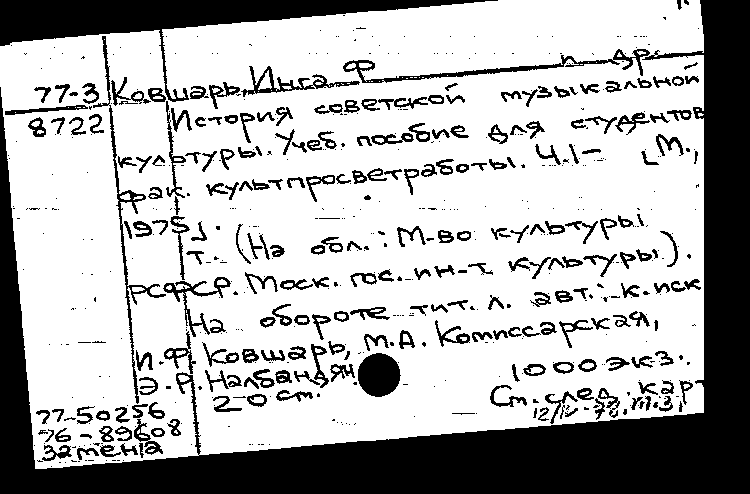 77-3 Ковшарь, Инга Ф и др.
8722 История советской музыкальной
культуры. Учеб. пособие для студентов
фак. культпросветработы. Ч.1- [М.,
1975].
т. (На обл.: М-во культуры
РСФСР. Моск. гос. ин-т культуры).
На обороте тит. л. авт.: к. иск
И.Ф. Ковшарь, М.А. Комиссарская,
Э.Р. Налбандян
20 см. 1000 экз.
77-50256 Ст. след. карт
76-89608
замена